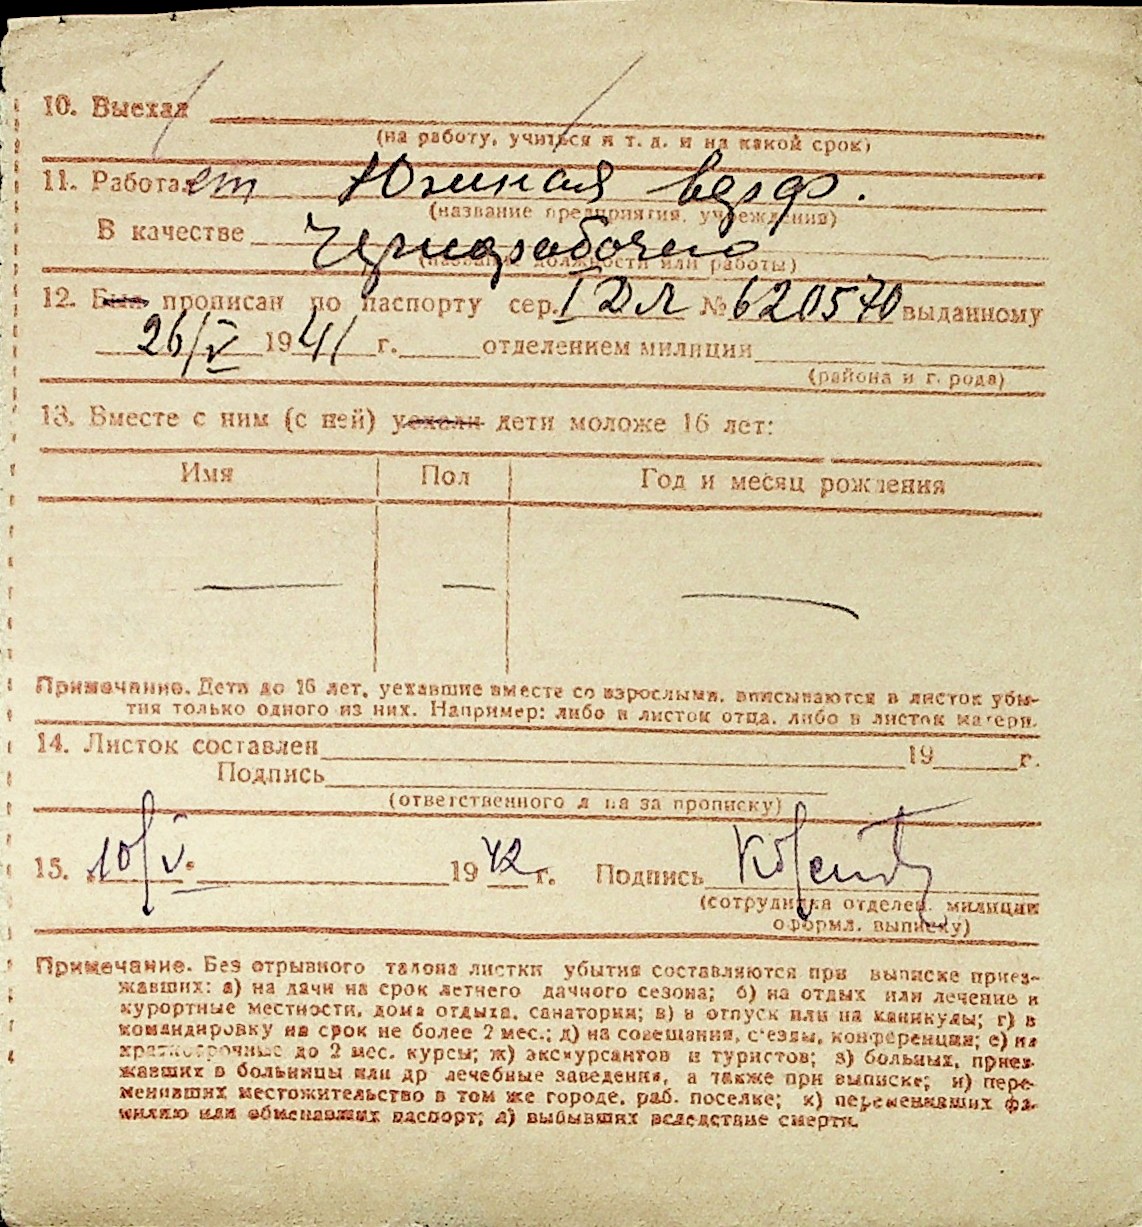 10. Выехал
(на работу, учиться и т. д. и на какой срок)
11. Работает Южная верф.
(название предприятия, учреждения)
В качестве Чернорабочего
(название должности или работы)
12. Был прописан по паспорту сер. I ДЛ № 620570 выданному
26/V 1941 г. отделением милиции
(района и города)
13. Вместе с ним (с ней) уехали дети моложе 16 лет:
Имя Пол Год и месяц рождения
— — —
Примечание. Дети до 16 лет, уехавшие вместе со взрослыми, вписываются в листок убы-
тия только одного из них. Например: либо в листок отца, либо в листок матери.
14. Листок составлен 19 г.
Подпись
(ответственного лица за прописку)
15. 10/V 1942 г. Подпись
(сотрудника отделен. милиции
оформл. выписку)
Примечание. Без отрывного талона листки убытия составляются при выписке приез-
жавших: а) на дачи на срок летнего дачного сезона; б) на отдых или лечение в
курортные местности, дома отдыха, санатории; в) в отпуск или на каникулы; г) в
командировку на срок не более 2 мес.; д) на совещания, съезды, конференции; е) на
краткосрочные до 2 мес. курсы; ж) экскурсантов и туристов; з) больных, приез-
жавших в больницы или др лечебные заведения, а также при выписке; и) пере-
менивших местожительство в том же городе, раб. поселке; к) переменивших фа-
милию или обменявших паспорт; л) выбывших вследствие смерти.